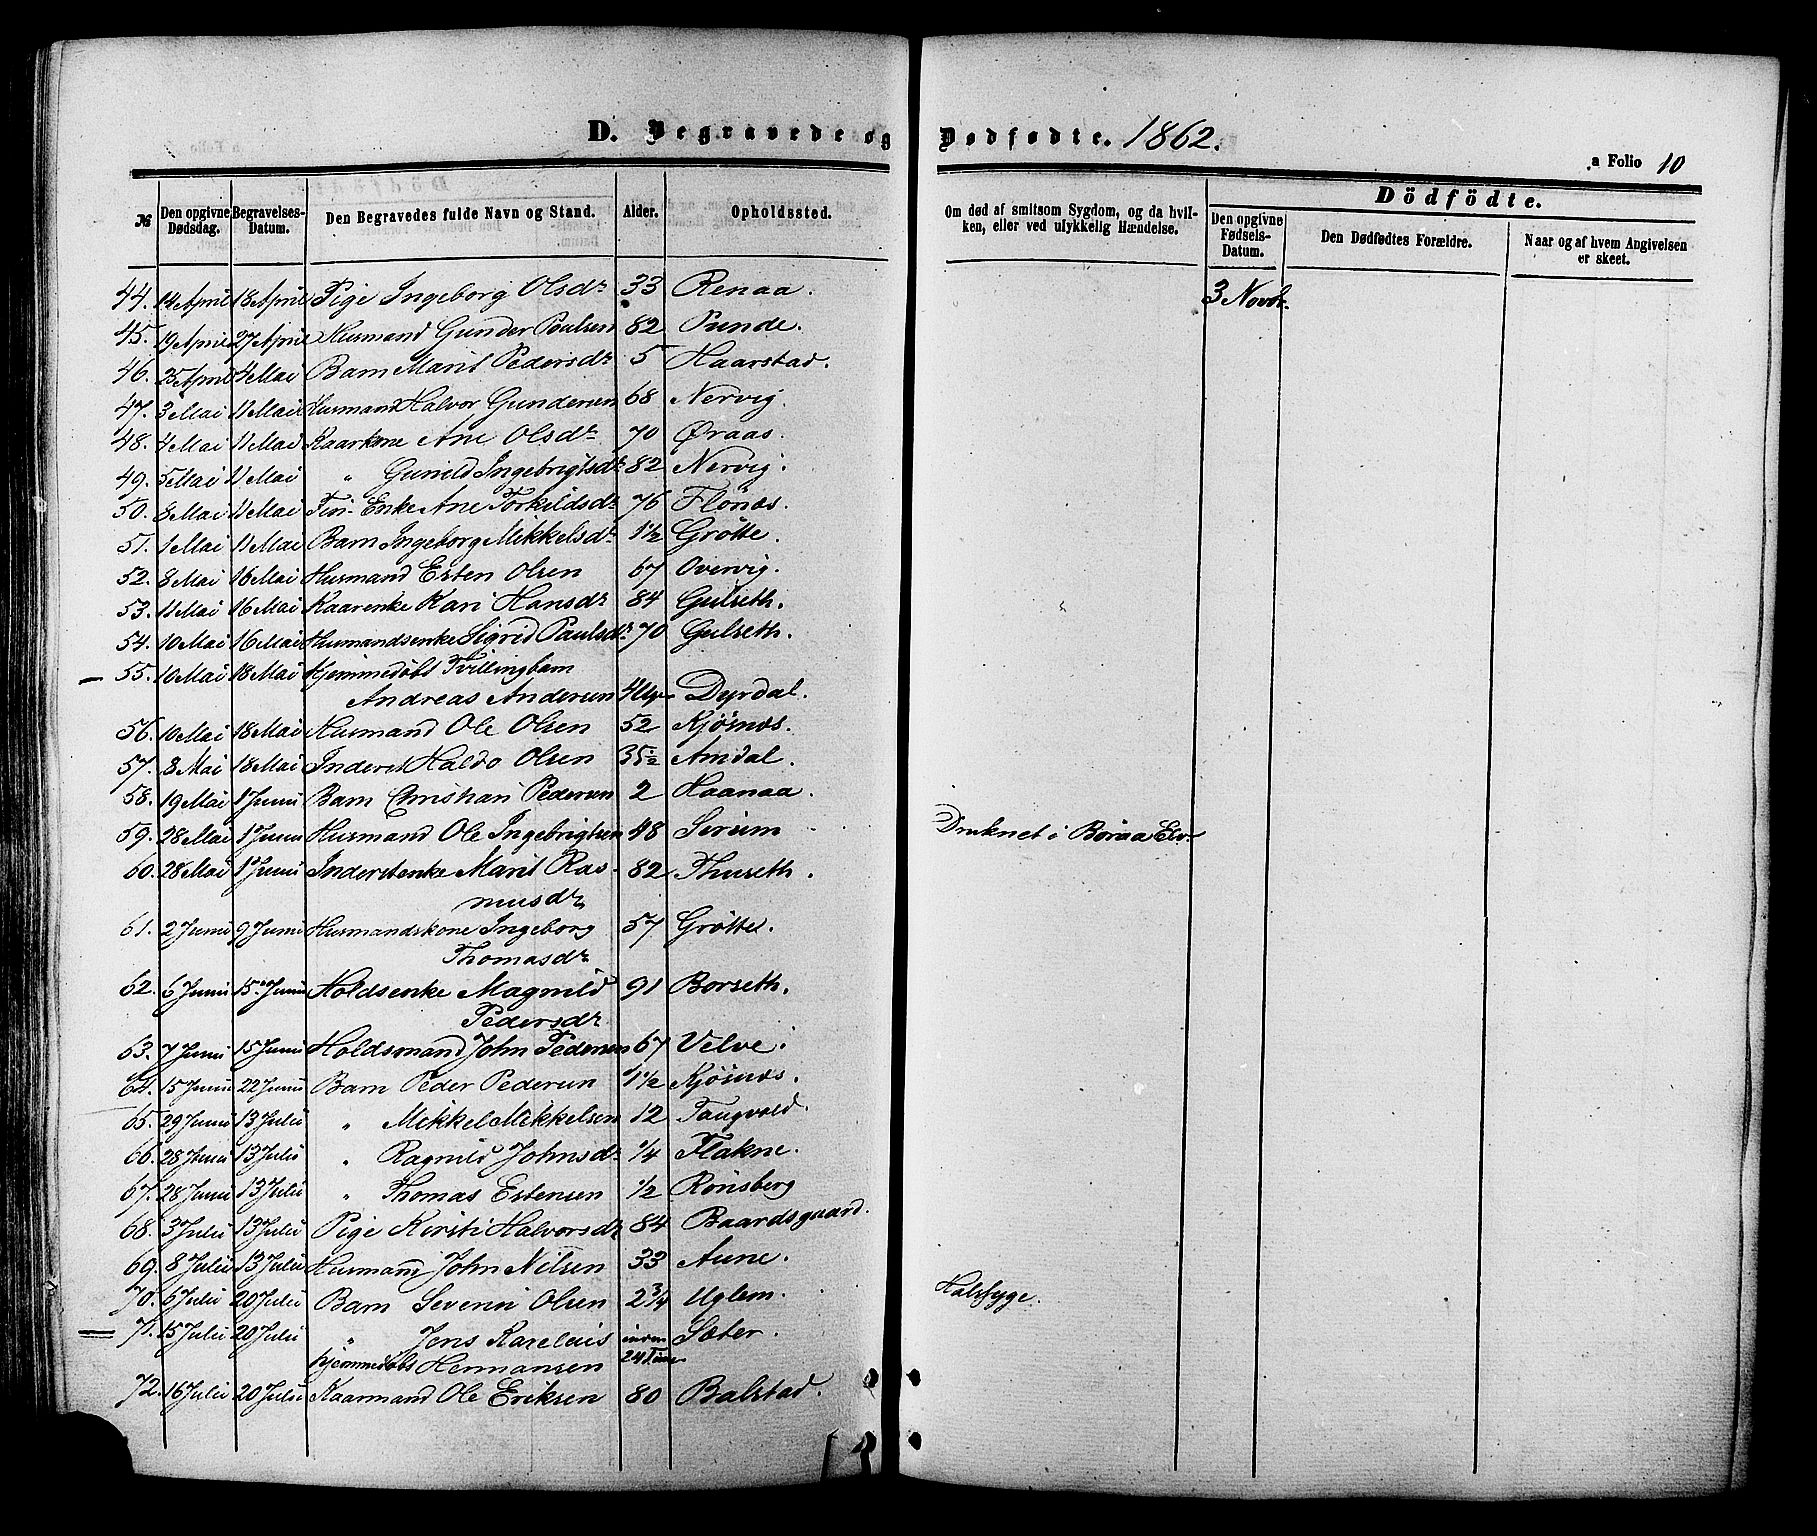 D. Begravede og Dødfødte. 1862.
a Folio 10
№ Den opgivne Dødsdag. Begravelses-Datum. Den Begravedes fulde Navn og Stand. Alder. Opholdssted. Om død af smitsom Sygdom, og da hvilken, eller ved ulykkelig Hændelse. Dödfödte. Den opgivne Fødsels-Datum. Den Dødfødtes Forældre. Naar og af hvem Angivelsen er skeet.
44. 14 April 18 April Pige Ingeborg Olsdr 33 Renaa. 3 Novbr.
45. 19 April 27 April Husmand Gunder Paulsen 82 Punde.
46. 25 April 4 Mai Barn Marit Pedersdr 5 Haarstad.
47. 3 Mai 11 Mai Husmand Halvor Gundersen 68 Nervig.
48. 4 Mai 11 Mai Kaarkone Ane Olsdr 70 Øraas.
49. 5 Mai 11 Mai " Gunild Ingebrigtsdr 82 Nervig.
50. 8 Mai 11 Mai Enke Ane Torkildsdr 76 Flönæs.
51. 1 Mai 11 Mai Barn Ingeborg Mikkelsdr 1½ Grötte.
52. 8 Mai 16 Mai Husmand Esten Olsen 67 Overvig.
53. 11 Mai 16 Mai Kaarenke Kari Hansdr 84 Gulseth.
54. 10 Mai 16 Mai Husmandsenke Sigrid Paulsdr 70 Gulseth.
55. 10 Mai 18 Mai Hjemmedöbt Tvillingbarn
Andreas Andersen 4 Uger Dyrdal.
56. 10 Mai 18 Mai Husmand Ole Olsen 52 Kjösnæs.
57. 8 Mai 18 Mai Inderst Haldo Olsen 35½ Amdal.
58. 19 Mai 1 Juni Barn Christian Pedersen 2 Haanaa.
59. 28 Mai 1 Juni Husmand Ole Ingebrigtsen 48 Sirum Druknet i Boraa Elv.
60. 28 Mai 1 Juni Inderstenke Marit Ras-
musdr 82 Thuseth.
61. 2 Juni 9 Juni Husmandskone Ingeborg
Thomasdr 57 Grötte.
62. 6 Juni 15 Juni Holdsenke Magnild
Pedersdr 91 Borseth.
63. 7 Juni 15 Juni Holdsmand John Pedersen 67 Velve.
64. 15 Juni 22 Juni Barn Peder Pedersen 1½ Kjösnæs.
65. 29 Juni 13 Juli " Mikkel Mikkelsen 12 Tangvold.
66. 28 Juni 13 Juli " Ragnild Johnsdr ¼ Flakne.
67. 28 Juni 13 Juli " Thomas Estensen ½ Rönsberg
68. 3 Juli 13 Juli Pige Kirsti Halvorsdr 84 Baardsgaard.
69. 8 Juli 13 Juli Husmand John Nilsen 33 Aune.
70. 6 Juli 20 Juli Barn Severin Olsen 2¾ Uglem. Halssyge.
71. 15 Juli 20 Juli " Jens Karelius inden Sæter.
hjemmedöbt Hermansen 24 Timer
72. 16 Juli 20 Juli Kaarmand Ole Eriksen 80 Balstad.